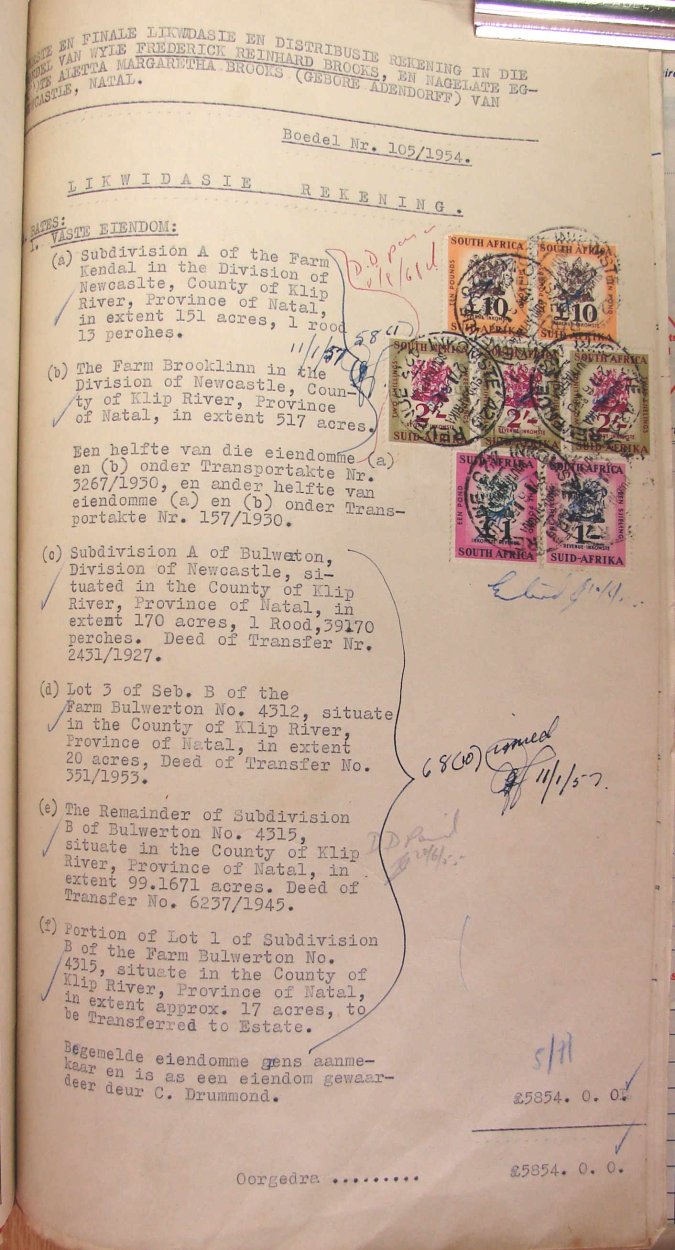 EN FINALE LIKWIDASIE EN DISTRIBUSIE REKENING IN DIE
VAN WYLE FREDERICK REINHARD BROOKS, EN NAGELATE EG-
ALETTA MARGARETHA BROOKS (GEBORE ADENDORFF) VAN
NATAL.
Boedel Nr. 105/1954.
LIKWIDASIE REKENING.
BATES:
1. VASTE EIENDOM:
(a) Subdivision A of the Farm
Kendal in the Division of
Newcaslte, County of Klip
River, Province of Natal,
in extent 151 acres, 1 rood
13 perches.
11/1/57
58(1)
(b) The Farm Brooklinn in the
Division of Newcastle, Coun-
ty of Klip River, Province
of Natal, in extent 517 acres.
Een helfte van die eiendomme (a)
en (b) onder Transportakte Nr.
3267/1930, en ander helfte van
eiendomme (a) en (b) onder Trans-
portakte Nr. 157/1930.
SOUTH AFRICA
EEN POND
£10
SUID-AFRIKA
SOUTH AFRICA
£10
SUID-AFRIKA
SOUTH AFRICA
2/-
SUID-AFRIKA
2/-
2/-
SUID-AFRIKA
SUID-AFRIKA
EEN POND
£1
SOUTH AFRICA
SOUTH AFRICA
1/-
REVENUE-INKOMSTE
SUID-AFRIKA
(c) Subdivision A of Bulweton,
Division of Newcastle, si-
tuated in the County of Klip
River, Province of Natal, in
extent 170 acres, 1 Rood,39170
perches. Deed of Transfer Nr.
2431/1927.
(d) Lot 3 of Seb. B of the
Farm Bulwerton No. 4312, situate
in the County of Klip River,
Province of Natal, in extent
20 acres, Deed of Transfer No.
351/1953.
68(10) issued
11/1/57.
(e) The Remainder of Subdivision
B of Bulwerton No. 4315,
situate in the County of Klip
River, Province of Natal, in
extent 99.1671 acres. Deed of
Transfer No. 6237/1945.
DD Paid
(f) Portion of Lot 1 of Subdivision
B of the Farm Bulwerton No.
4315, situate in the County of
Klip River, Province of Natal,
in extent approx. 17 acres, to
be Transferred to Estate.
Begemelde eiendomme gens aanme-
kaar en is as een eiendom gewaar-
deer deur C. Drummond.
£5854. 0. 0.
Oorgedra .........
£5854. 0. 0.